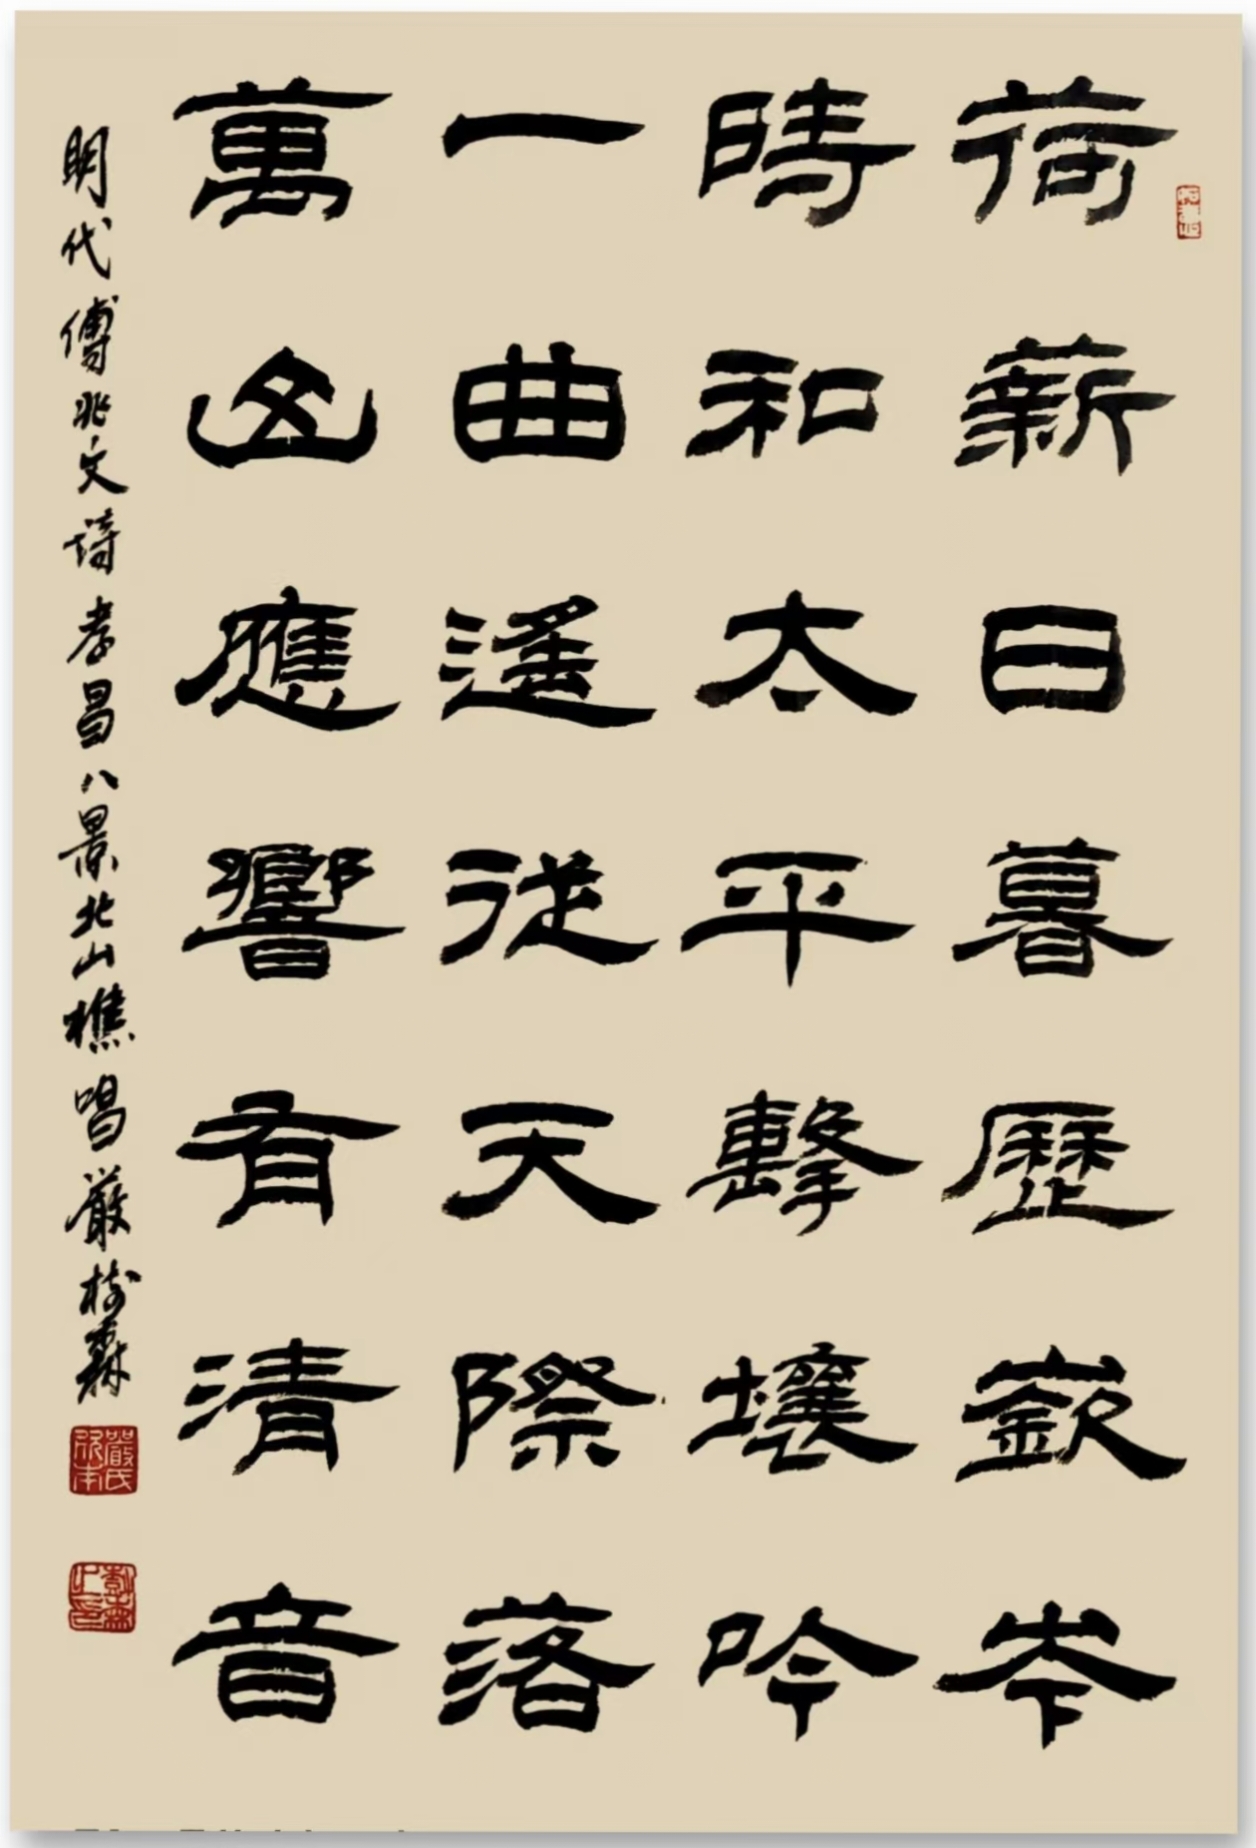 荷薪日暮歷嶔岑
時和太平擊壤吟
一曲遙從天際落
萬山應響有清音
明代傅兆文詩孝昌八景北山樵唱嚴樹霖